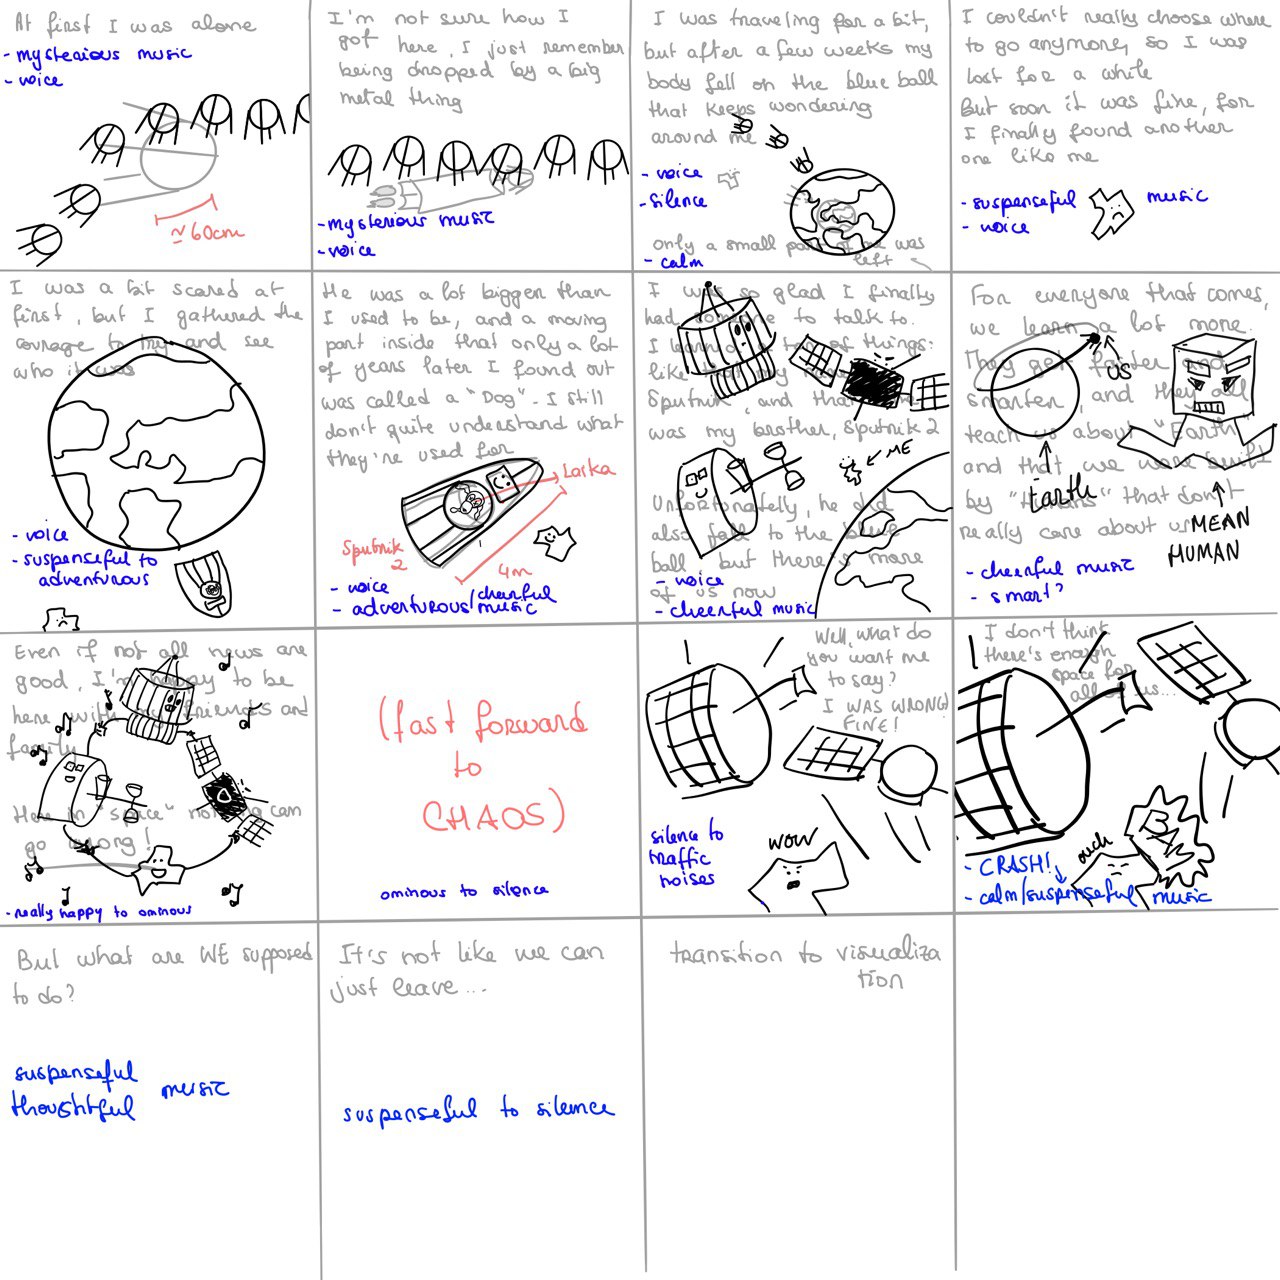 At first I was alone
- mysterious music
- voice
≈ 60cm
I'm not sure how I
got here, I just remember
being dropped by a big
metal thing
- mysterious music
- voice
I was traveling for a bit,
but after a few weeks my
body fell on the blue ball
that keeps wondering
around me
- voice
- silence
only a small part of me was
left
- calm
I couldn't really choose where
to go anymore, so I was
lost for a while
But soon it was fine, for
I finally found another
one like me
- suspenseful music
- voice
I was a bit scared at
first, but I gathered the
courage to try and see
who it was
- voice
- suspenseful to
adventurous
He was a lot bigger than
I used to be, and a moving
part inside that only a lot
of years later I found out
was called a "Dog". I still
don't quite understand what
they're used for
Laika
Sputnik
2
4m
- voice
- adventurous/cheerful
music
I was so glad I finally
had someone to talk to.
I learned a ton of things:
like that my name
Sputnik, and that
was my brother, Sputnik 2
← ME
Unfortunately, he did
also fall to the blue
ball but there's more
of us now
- voice
- cheerful music
For everyone that comes,
we learn a lot more.
They get faster and
smarter, and they all
teach us about "Earth"
and that we were built
by "Humans" that don't
really care about us
US
Earth
MEAN
HUMAN
- cheerful music
- smart?
Even if not all news are
good, I'm happy to be
here with my friends and
family
Here in "space" nothing can
go wrong!
- really happy to ominous
(fast forward
to
CHAOS)
ominous to silence
Well, what do
you want me
to say?
I WAS WRONG!
FINE!
silence to
traffic
noises
WOW
I don't think
there's enough
space for
all of us...
BAM
ouch
- CRASH!
- calm/suspenseful music
But what are WE supposed
to do?
suspenseful
thoughtful music
It's not like we can
just leave...
suspenseful to silence
transition to visualiza
tion